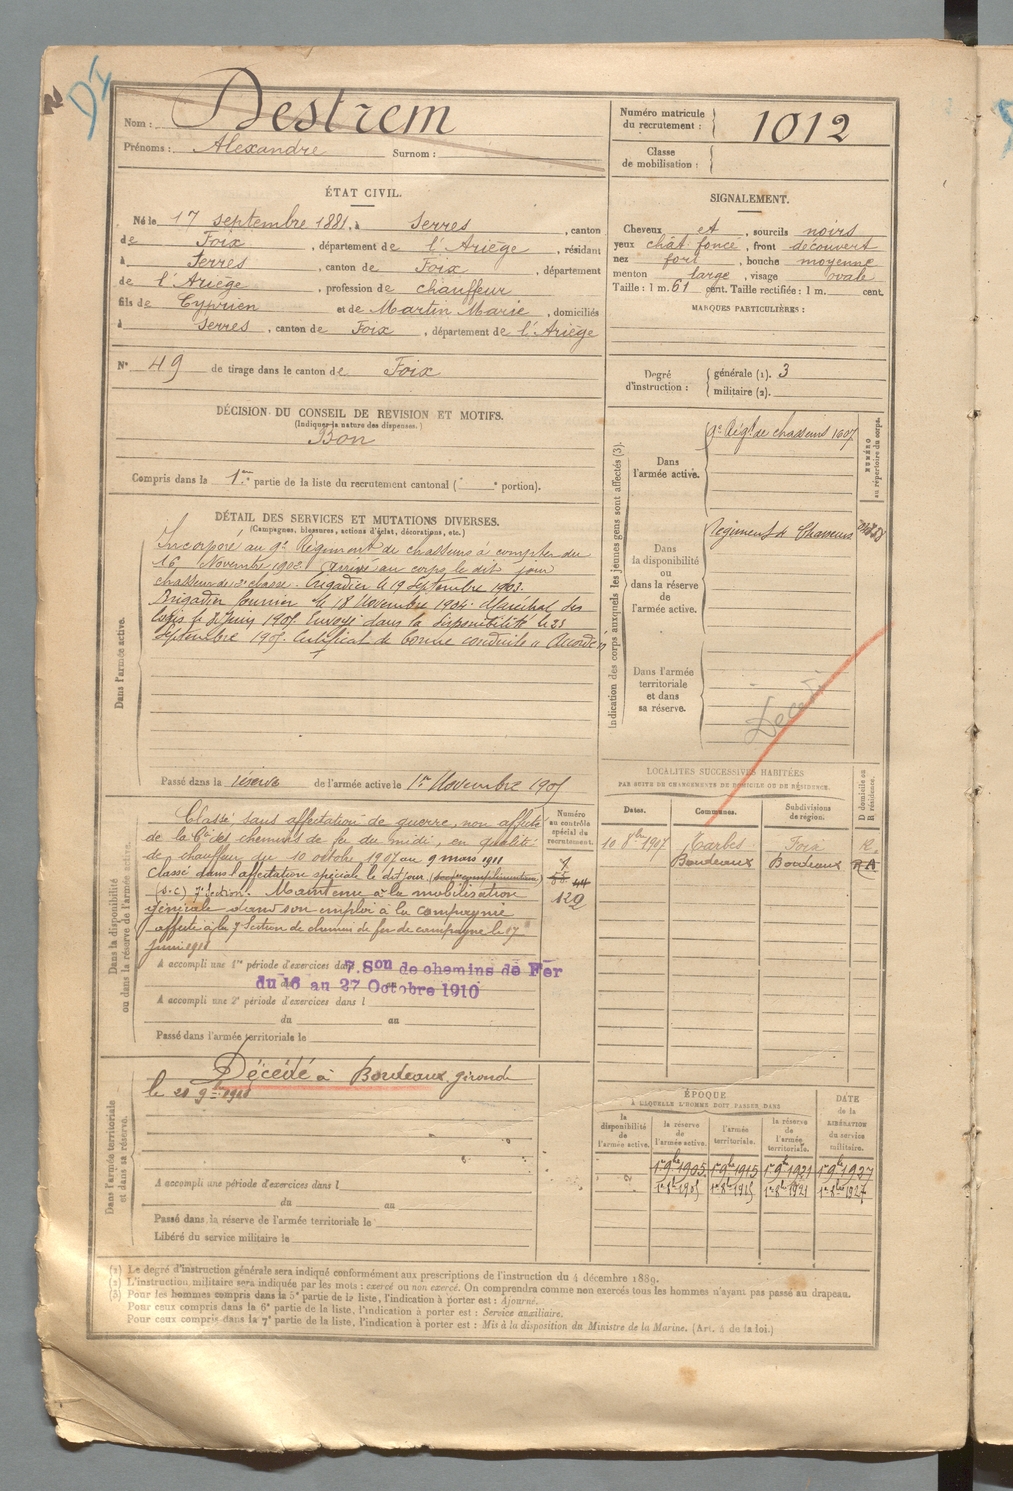 Nom : Destrem
Prénoms : Alexandre Surnom :
Numéro matricule du recrutement : 1012
Classe de mobilisation :
ÉTAT CIVIL.
Né le 17 septembre 1881, à Serres, canton
de Foix, département de l'Ariège, résidant
à Serres, canton de Foix, département
de l'Ariège, profession de chauffeur
fils de Cyprien et de Martin Marie, domiciliés
à Serres, canton de Foix, département de l'Ariège
N° 49 de tirage dans le canton de Foix
SIGNALEMENT.
Cheveux et, sourcils noirs
yeux chât foncé, front découvert
nez fort, bouche moyenne
menton large, visage ovale
Taille : 1 m. 61 cent. Taille rectifiée : 1 m. cent.
MARQUES PARTICULIÈRES :
Degré d'instruction : générale (1). 3
militaire (2).
DÉCISION DU CONSEIL DE REVISION ET MOTIFS.
(Indiquer la nature des dispenses.)
Bon
Compris dans la 1re partie de la liste du recrutement cantonal ( e portion).
DÉTAIL DES SERVICES ET MUTATIONS DIVERSES.
(Campagnes, blessures, actions d'éclat, décorations, etc.)
Dans l'armée active.
Incorporé au 9e Régiment de chasseurs à compter du
16 Novembre 1902. Arrivé au corps le dit jour
chasseur de 2e classe. Brigadier le 19 septembre 1903.
Brigadier fourrier le 18 Novembre 1904. Maréchal des
logis le Juin 1905. Envoyé dans la disponibilité le 23
Septembre 1905. Certificat de bonne conduite "Accordé"
Passé dans la réserve de l'armée active le 1er Novembre 1905
Indication des corps auxquels les jeunes gens sont affectés (3).
NUMÉRO au répertoire du corps.
Dans l'armée active. 9e Régt de chasseurs 1607
Dans la disponibilité ou dans la réserve de l'armée active. Régiment de Chasseurs
Dans l'armée territoriale et dans sa réserve.
Décédé
LOCALITÉS SUCCESSIVES HABITÉES
PAR SUITE DE CHANGEMENTS DE DOMICILE OU DE RÉSIDENCE.
D domicile ou R résidence.
Dates. Communes. Subdivisions de région.
10 8bre 1907 Tarbes Foix R.
Bordeaux Bordeaux
Dans la disponibilité ou dans la réserve de l'armée active.
Numéro au contrôle spécial du recrutement.
Classé sans affectation de guerre, non affecté
de la Cie des chemins de fer du midi, en qualité
de chauffeur du 10 octobre 1907 au 9 mars 1911
Classé dans l'affectation spéciale le dit jour
(S.C) 7e Section. Maintenu à la mobilisation
générale dans son emploi à la compagnie
affecté à la 7 Section de chemin de fer de campagne le 17
129
A accompli une 1re période d'exercices dans 7. Son de chemins de Fer
du 16 au 27 Octobre 1910
A accompli une 2e période d'exercices dans l
du au
Passé dans l'armée territoriale le
Dans l'armée territoriale et dans sa réserve.
Décédé à Bordeaux, gironde
A accompli une période d'exercices dans l
du au
Passé dans la réserve de l'armée territoriale le
Libéré du service militaire le
ÉPOQUE
A LAQUELLE L'HOMME DOIT PASSER DANS
DATE de la LIBÉRATION du service militaire.
la disponibilité de l'armée active. la réserve de l'armée active. l'armée territoriale. la réserve de l'armée territoriale.
1er 9bre 1905 1er 9bre 1915 1er 9bre 1921 1er 9bre 1927
(1) Le degré d'instruction générale sera indiqué conformément aux prescriptions de l'instruction du 4 décembre 1889.
(2) L'instruction militaire sera indiquée par les mots : exercé ou non exercé. On comprendra comme non exercés tous les hommes n'ayant pas passé au drapeau.
(3) Pour les hommes compris dans la 5e partie de la liste, l'indication à porter est : Ajourné.
Pour ceux compris dans la 6e partie de la liste, l'indication à porter est : Service auxiliaire.
Pour ceux compris dans la 7e partie de la liste, l'indication à porter est : Mis à la disposition du Ministre de la Marine. (Art. 4 de la loi.)